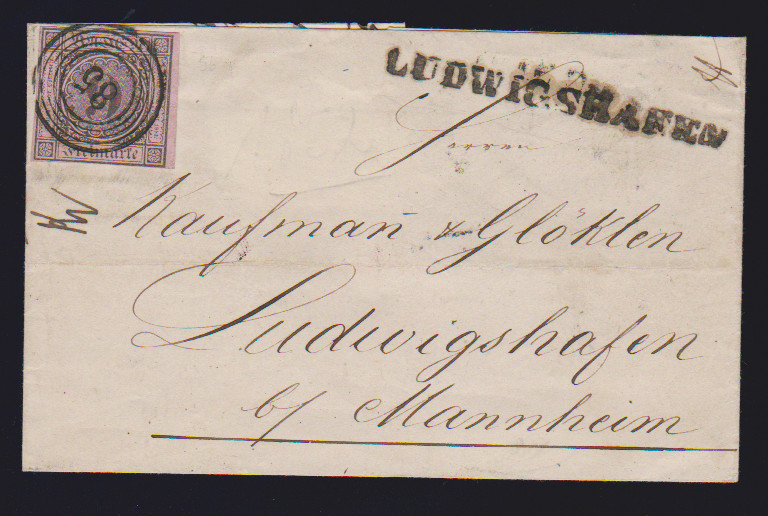 85
Freimarke
LUDWIGSHAFEN
Herren
Kaufmañ & Glöklen
Ludwigshafen
b/ Mannheim